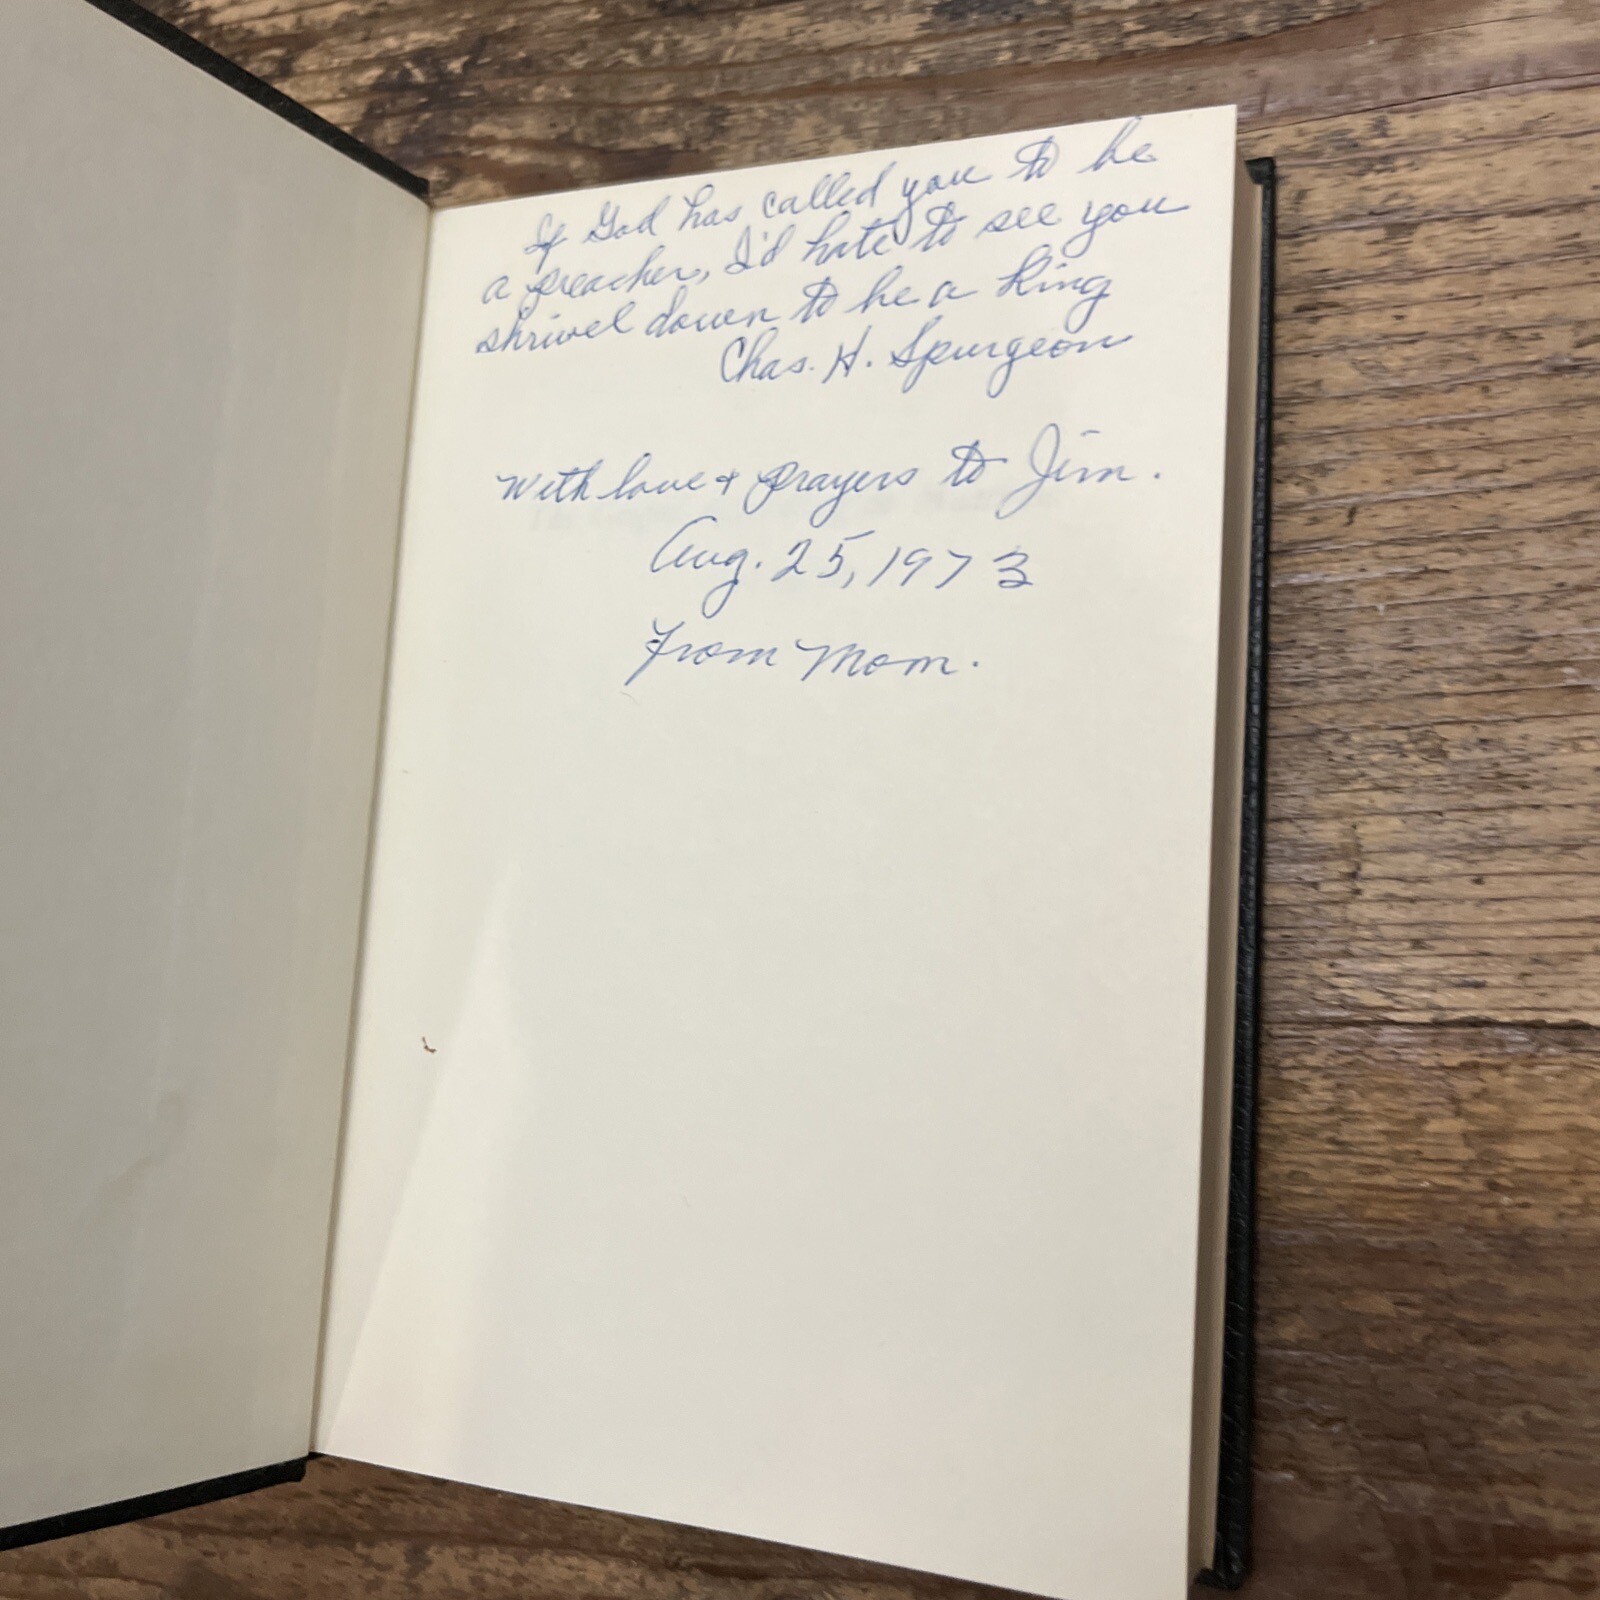 If God has called you to be
a preacher, I'd hate to see you
shrivel down to be a King
Chas. H. Spurgeon
With love + prayers to Jim.
Aug. 25, 1973
From Mom.